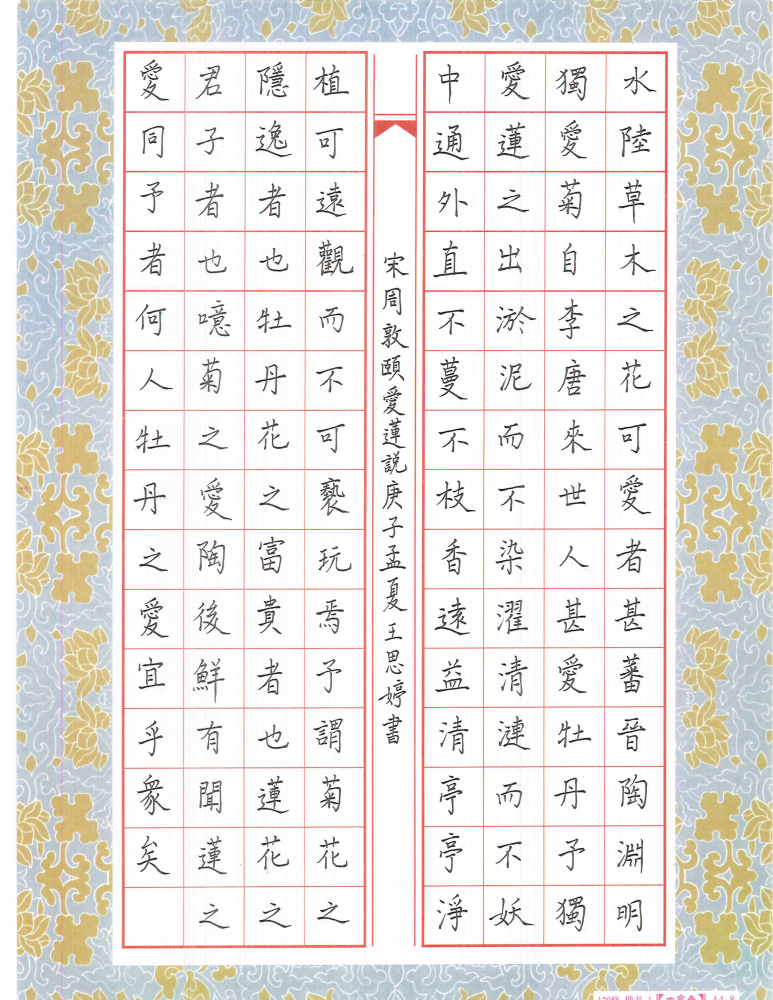 水陸草木之花可愛者甚蕃晉陶淵明
獨愛菊自李唐來世人甚愛牡丹予獨
愛蓮之出淤泥而不染濯清漣而不妖
中通外直不蔓不枝香遠益清亭亭淨
植可遠觀而不可褻玩焉予謂菊花之
隱逸者也牡丹花之富貴者也蓮花之
君子者也噫菊之愛陶後鮮有聞蓮之
愛同予者何人牡丹之愛宜乎眾矣
宋周敦頤愛蓮説庚子孟夏王思婷書